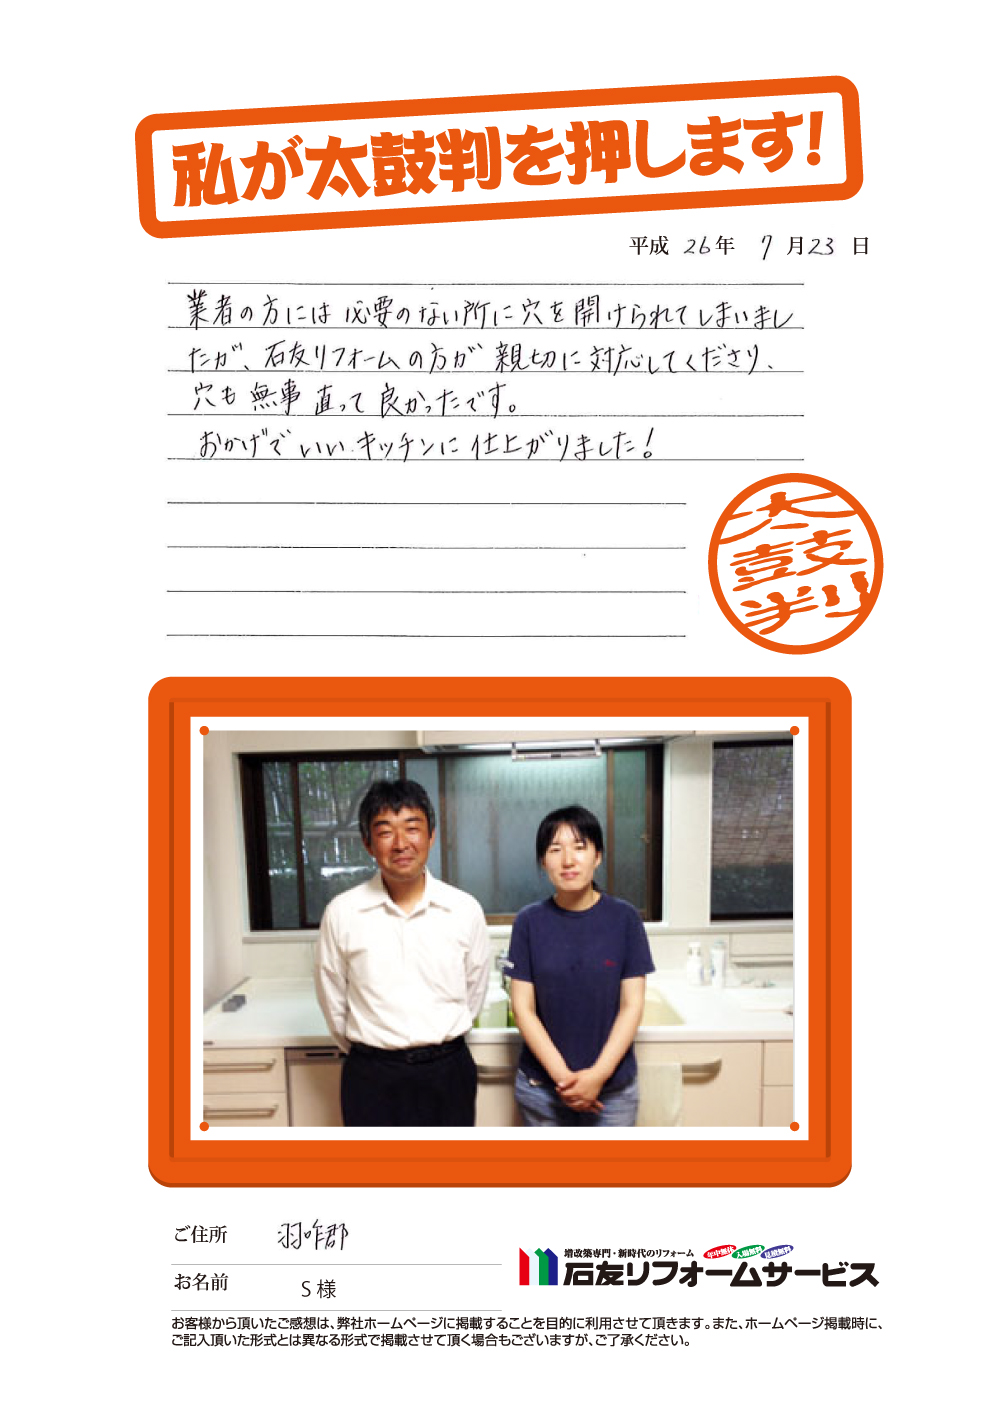 私が太鼓判を押します!
平成 26年 7月23日
業者の方には必要のない所に穴を開けられてしまいまし
たが、石友リフォームの方が親切に対応してくださり、
穴も無事直って良かったです。
おかげでいいキッチンに仕上がりました!
太鼓判
ご住所 羽咋郡
お名前 S様
増改築専門・新時代のリフォーム 年中無休 入場無料 見積無料
石友リフォームサービス
お客様から頂いたご感想は、弊社ホームページに掲載することを目的に利用させて頂きます。また、ホームページ掲載時に、
ご記入頂いた形式とは異なる形式で掲載させて頂く場合もございますが、ご了承ください。